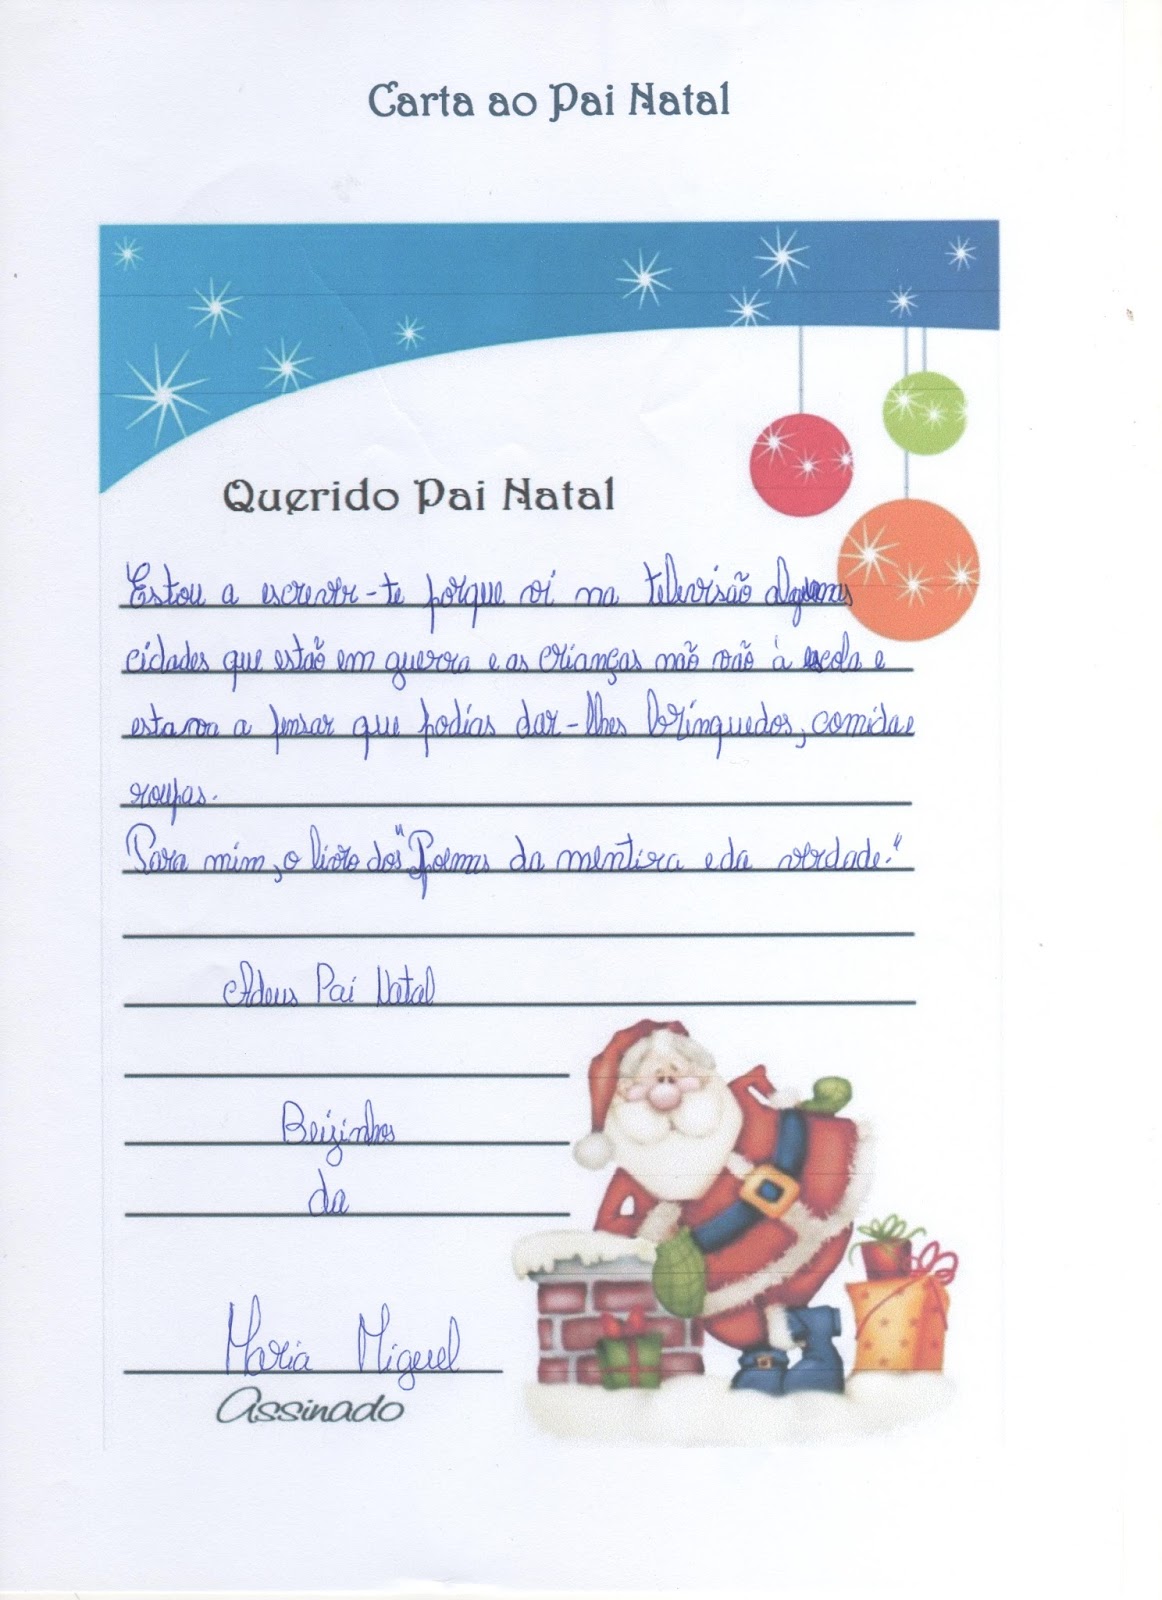 Carta ao Pai Natal
Querido Pai Natal
Estou a escrever-te porque vi na televisão algumas
cidades que estão em guerra e as crianças não vão à escola e
estava a pensar que podias dar-lhes brinquedos, comida e
roupas.
Para mim, o livro dos "Poemas da mentira e da verdade."
Adeus Pai Natal
Beijinhos
da
Maria Miguel
Assinado